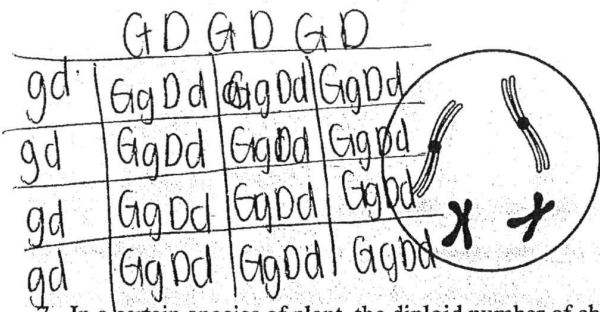 GD GD GD
gd GgDd GgDd GgDd
gd GgDd GgDd GgDd
gd GgDd GgDd GgDd
gd GgDd GgDd GgDd
7. In a certain species of plant, the diploid number of